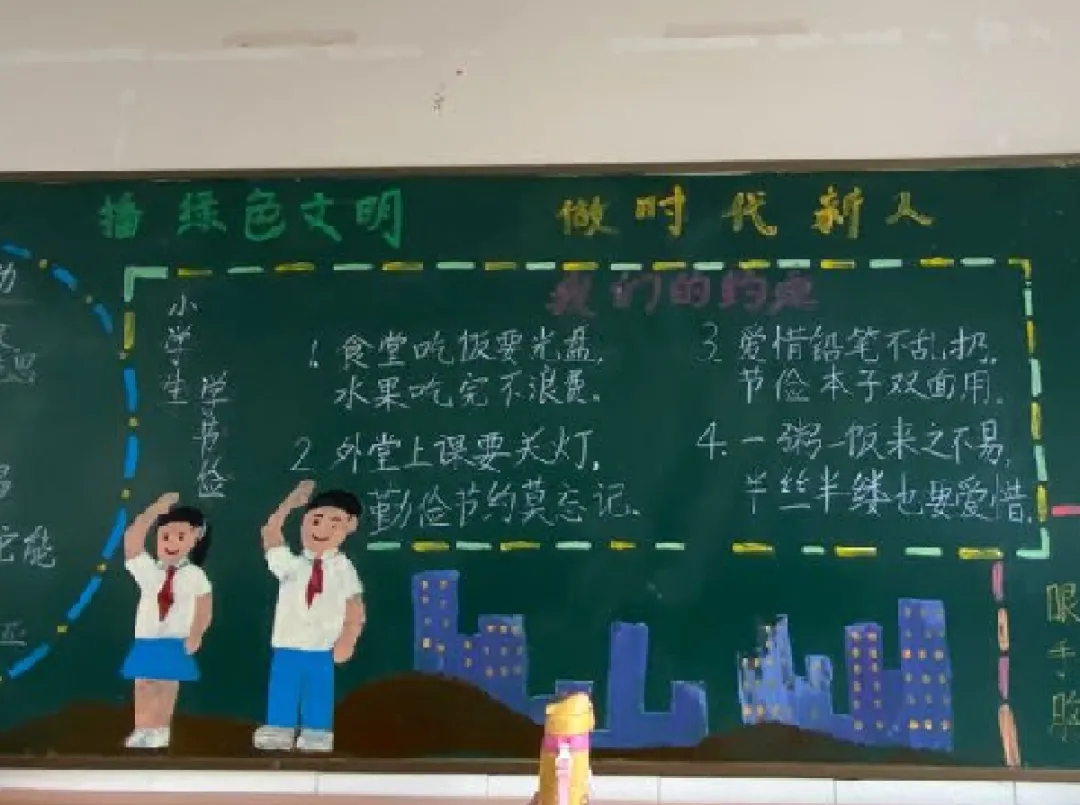 播绿色文明 做时代新人
我们的约定
小学生
学节俭
1. 食堂吃饭要光盘,
水果吃完不浪费。
2. 外堂上课要关灯,
勤俭节约莫忘记。
3. 爱惜铅笔不乱扔,
节俭本子双面用。
4. 一粥一饭来之不易,
半丝半缕也要爱惜.
能
眼
手
胸